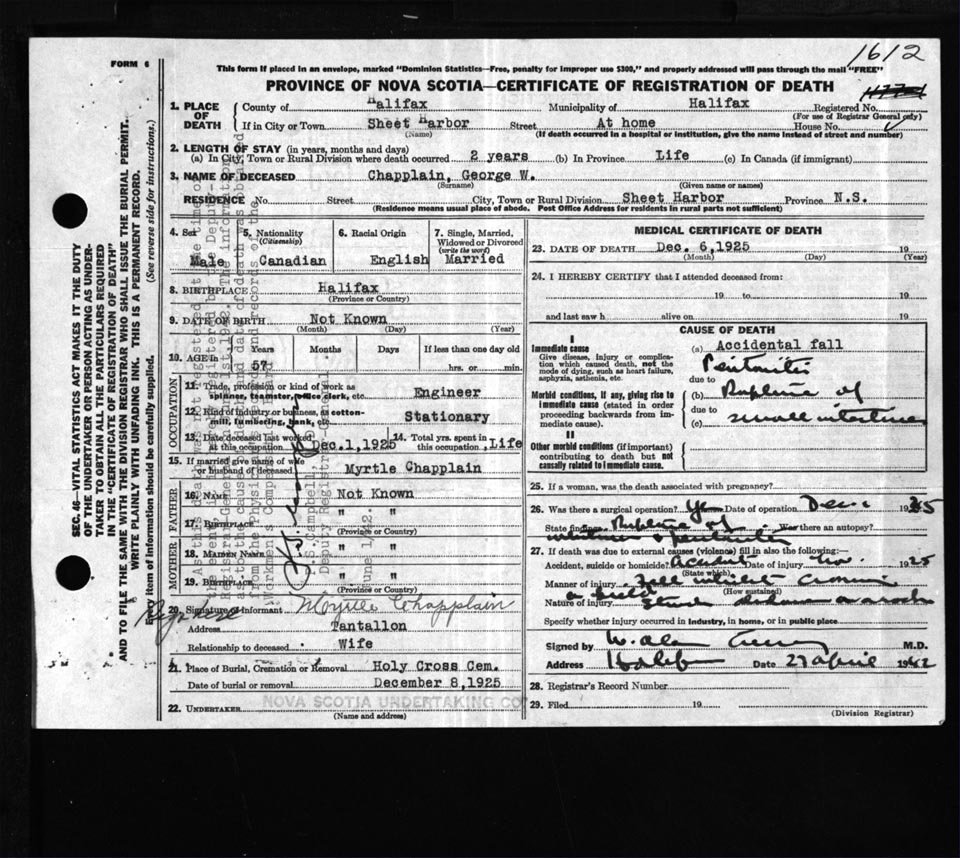 1612
FORM 6
This form if placed in an envelope, marked "Dominion Statistics—Free, penalty for improper use $300," and properly addressed will pass through the mail "FREE"
PROVINCE OF NOVA SCOTIA—CERTIFICATE OF REGISTRATION OF DEATH
1. PLACE OF DEATH
County of Halifax Municipality of Halifax Registered No.
(For use of Registrar General only)
If in City or Town Sheet Harbor Street At home House No.
(Name) (If death occurred in a hospital or institution, give the name instead of street and number)
2. LENGTH OF STAY (in years, months and days)
(a) In City, Town or Rural Division where death occurred 2 years (b) In Province Life (c) In Canada (if immigrant)
3. NAME OF DECEASED Chapplain, George W.
(Surname) (Given name or names)
RESIDENCE No. Street City, Town or Rural Division Sheet Harbor Province N.S.
(Residence means usual place of abode. Post Office Address for residents in rural parts not sufficient)
4. Sex 5. Nationality (Citizenship) 6. Racial Origin 7. Single, Married, Widowed or Divorced (write the word)
Male Canadian English Married
8. BIRTHPLACE Halifax
(Province or Country)
9. DATE OF BIRTH Not Known
(Month) (Day) (Year)
10. AGE in Years Months Days If less than one day old
57 hrs. or min.
OCCUPATION
11. Trade, profession or kind of work as spinner, teamster, office clerk, etc. Engineer
12. Kind of industry or business, as cotton-mill, lumbering, bank, etc. Stationary
13. Date deceased last worked at this occupation Dec. 1, 1925 14. Total yrs. spent in this occupation Life
15. If married give name of wife or husband of deceased Myrtle Chapplain
FATHER
16. NAME Not Known
17. BIRTHPLACE " "
(Province or Country)
MOTHER
18. MAIDEN NAME " "
19. BIRTHPLACE " "
(Province or Country)
20. Signature of informant Myrtle Chapplain
Address Tantallon
Relationship to deceased Wife
21. Place of Burial, Cremation or Removal Holy Cross Cem.
Date of burial or removal December 8, 1925
22. UNDERTAKER NOVA SCOTIA UNDERTAKING CO
(Name and address)
MEDICAL CERTIFICATE OF DEATH
23. DATE OF DEATH Dec. 6, 1925 19
(Month) (Day) (Year)
24. I HEREBY CERTIFY that I attended deceased from:
19 to 19
and last saw h alive on 19
CAUSE OF DEATH
I
Immediate cause
Give disease, injury or complication which caused death, not the mode of dying, such as heart failure, asphyxia, asthenia, etc.
(a) Accidental fall
due to
Morbid conditions, if any, giving rise to immediate cause (stated in order proceeding backwards from immediate cause)
(b) Rupture of
due to
(c) small intestines
II
Other morbid conditions (if important) contributing to death but not causally related to immediate cause.
25. If a woman, was the death associated with pregnancy?
26. Was there a surgical operation? Yes Date of operation Dec 1925
State findings Rupture of Was there an autopsy?
27. If death was due to external causes (violence) fill in also the following:—
Accident, suicide or homicide? Accident Date of injury 1925
(State which)
Manner of injury Fall
(How sustained)
a field
Nature of injury
Specify whether injury occurred in Industry, in home, or in public place
Signed by M.D.
Address Halifax Date 27 April 1942
28. Registrar's Record Number
29. Filed 19
(Division Registrar)
SEC. 46—VITAL STATISTICS ACT MAKES IT THE DUTY
OF THE UNDERTAKER OR PERSON ACTING AS UNDER-
TAKER TO OBTAIN ALL THE PARTICULARS REQUIRED
IN THE "CERTIFICATE OF REGISTRATION OF DEATH"
AND TO FILE THE SAME WITH THE DIVISION REGISTRAR WHO SHALL ISSUE THE BURIAL PERMIT.
WRITE PLAINLY WITH UNFADING INK. THIS IS A PERMANENT RECORD.
Every item of information should be carefully supplied. (See reverse side for instructions.)
June 1, 1942.